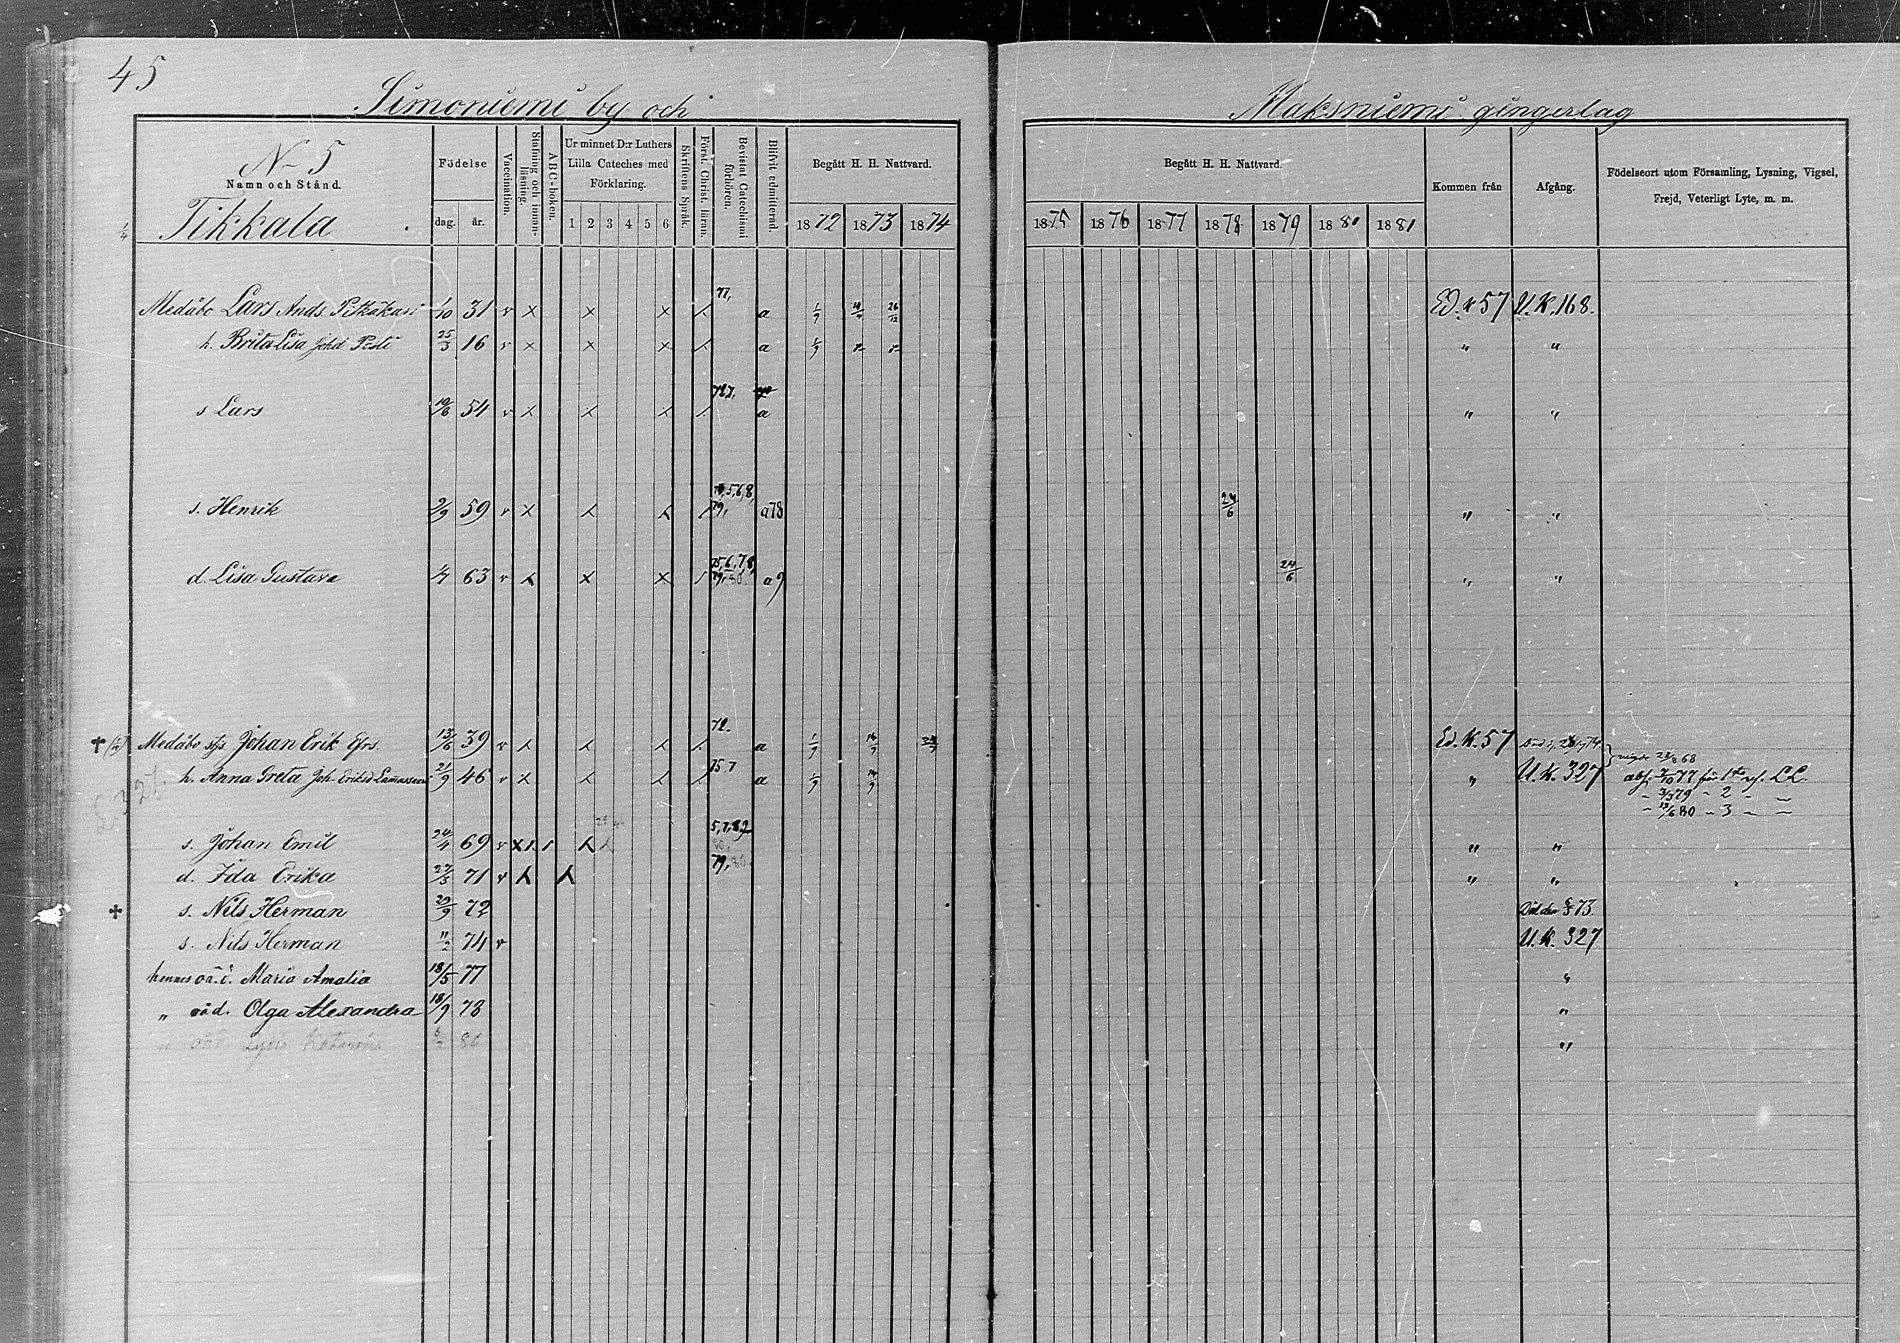 45
Simoniemi by och
Maksniemi gingerlag
No 5
Namn och Stånd.
Tikkala
Födelse
dag. år.
Vaccination.
Stafning och innan-läsning.
ABC-boken.
Ur minnet D:r Luthers Lilla Cateches med Förklaring.
1 2 3 4 5 6
Skriftens Språk.
Först. Christ. läran.
Bevistat Catechismi förhören.
Blifvit admitterad.
Begått H. H. Nattvard.
1872 1873 1874
Begått H. H. Nattvard.
1875 1876 1877 1878 1879 1880 1881
Kommen från
Afgång.
Födelseort utom Församling, Lysning, Vigsel, Frejd, Veterligt Lyte, m. m.
Medåbo Lars Ands. Pitkäkari 1/10 31 v × × × / 77, a 1/9 Ed. K 57 U.K. 168.
h. Brita Lisa Johd Posti 25/3 16 v × × × / a 1/9 " "
s Lars 19/6 54 v a " "
s. Henrik 2/9 59 v × 5,6,8, 79, a 78 24/6 " "
d. Lisa Gustava 63 v × × 75,6,7,8, 79, 80 a 9 24/6 " "
Medåbo Johan Erik Efrs. 13/6 39 v 72 a 1/9 14/9 Ed. K. 57 74
h. Anna Greta Joh. Eriksd 21/9 46 v 75 7 a 1/9 14/9 " U.K. 327 68
77 L.L.
79 " 2 " "
13/6 80 " 3 " "
s. Johan Emil 24/4 69 v × 5,7,8,9 " "
d. Ida Erika 27/5 71 v 79, 80 " "
s. Nils Herman 29/9 72 Död den 73
s. Nils Herman 11/2 74 v U.K. 327
hennes oä. d. Maria Amalia 18/5 77 "
" oäd. Olga Alexandra 18/9 78 "
" 80 "